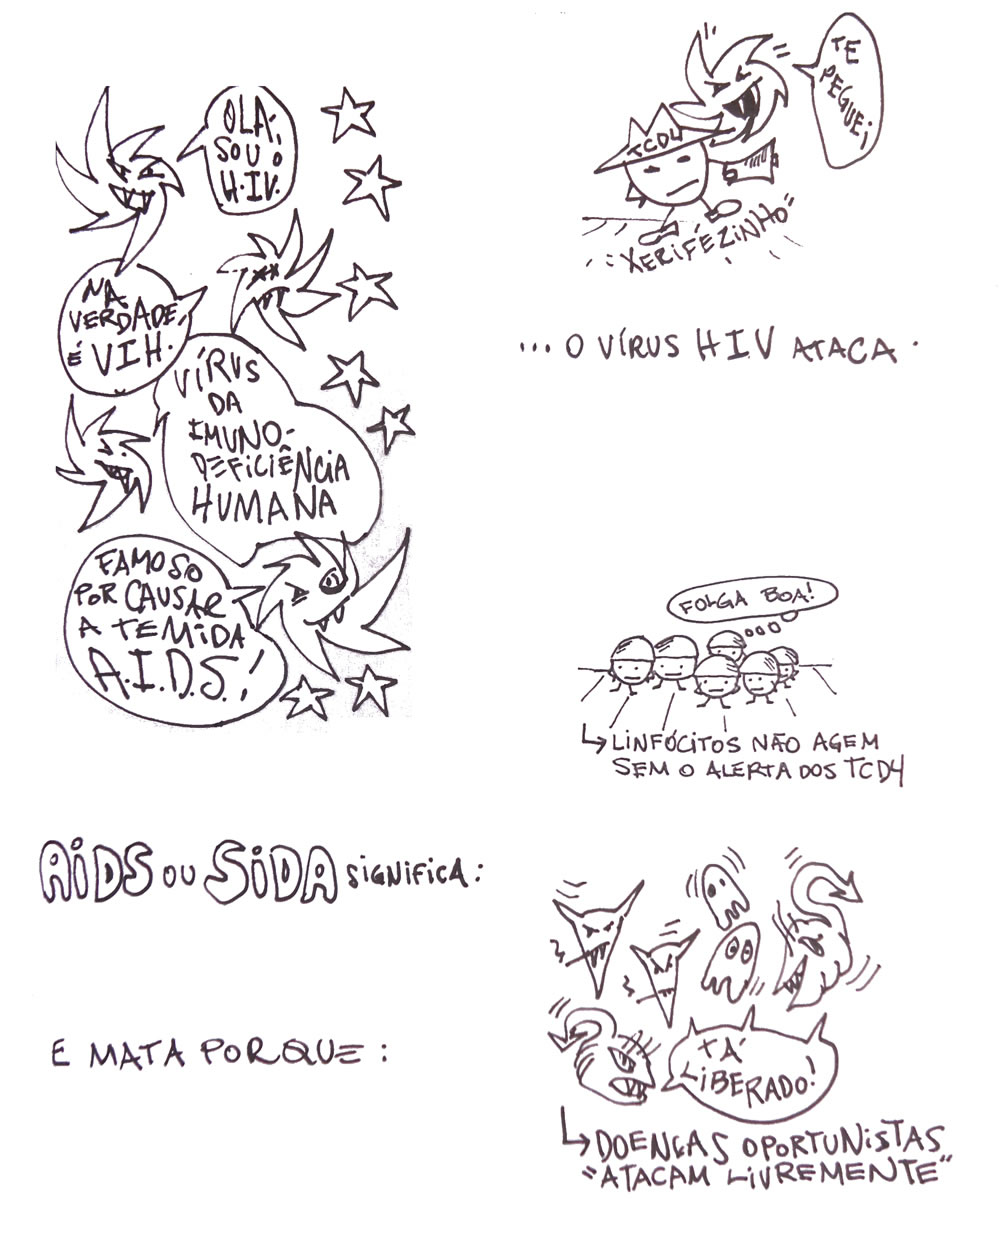 OLÁ,
SOU O
H.IV.
NA
VERDADE,
É VIH.
VÍRUS
DA
IMUNO-
DEFICIÊNCIA
HUMANA
FAMOSO
POR CAUSAR
A TEMIDA
A.I.D.S.!
AIDS OU SIDA SIGNIFICA:
E MATA PORQUE:
TE
PEGUEI
TCD4
"XERIFEZINHO"
... O VÍRUS HIV ATACA.
FOLGA BOA!
LINFÓCITOS NÃO AGEM
SEM O ALERTA DOS TCD4
TÁ
LIBERADO!
DOENÇAS OPORTUNISTAS
"ATACAM LIVREMENTE"